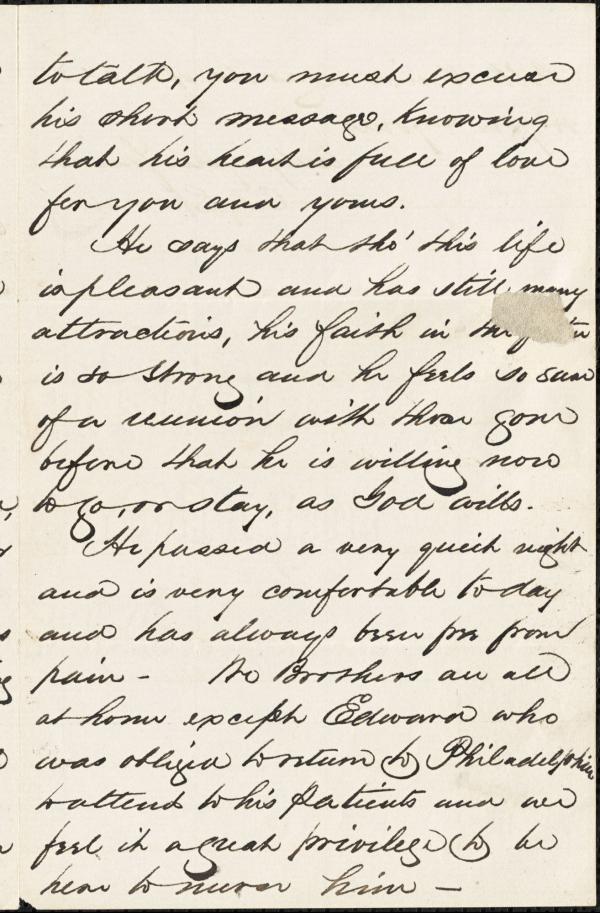 to talk, you must excuse
his short message, knowing
that his heart is full of love
for you and yours.
He says that tho' this life
is pleasant and has still many
attractions, his faith in the
is so strong and he feels so sure
of a reunion with those gone
before that he is willing now
to go, or stay, as God wills.
He passed a very quiet night
and is very comfortable today
and has always been free from
pain - We Brothers are all
at home except Edward who
was obliged to return to Philadelphia
to attend to his patients and we
feel it a great privilege to be
here to nurse him -